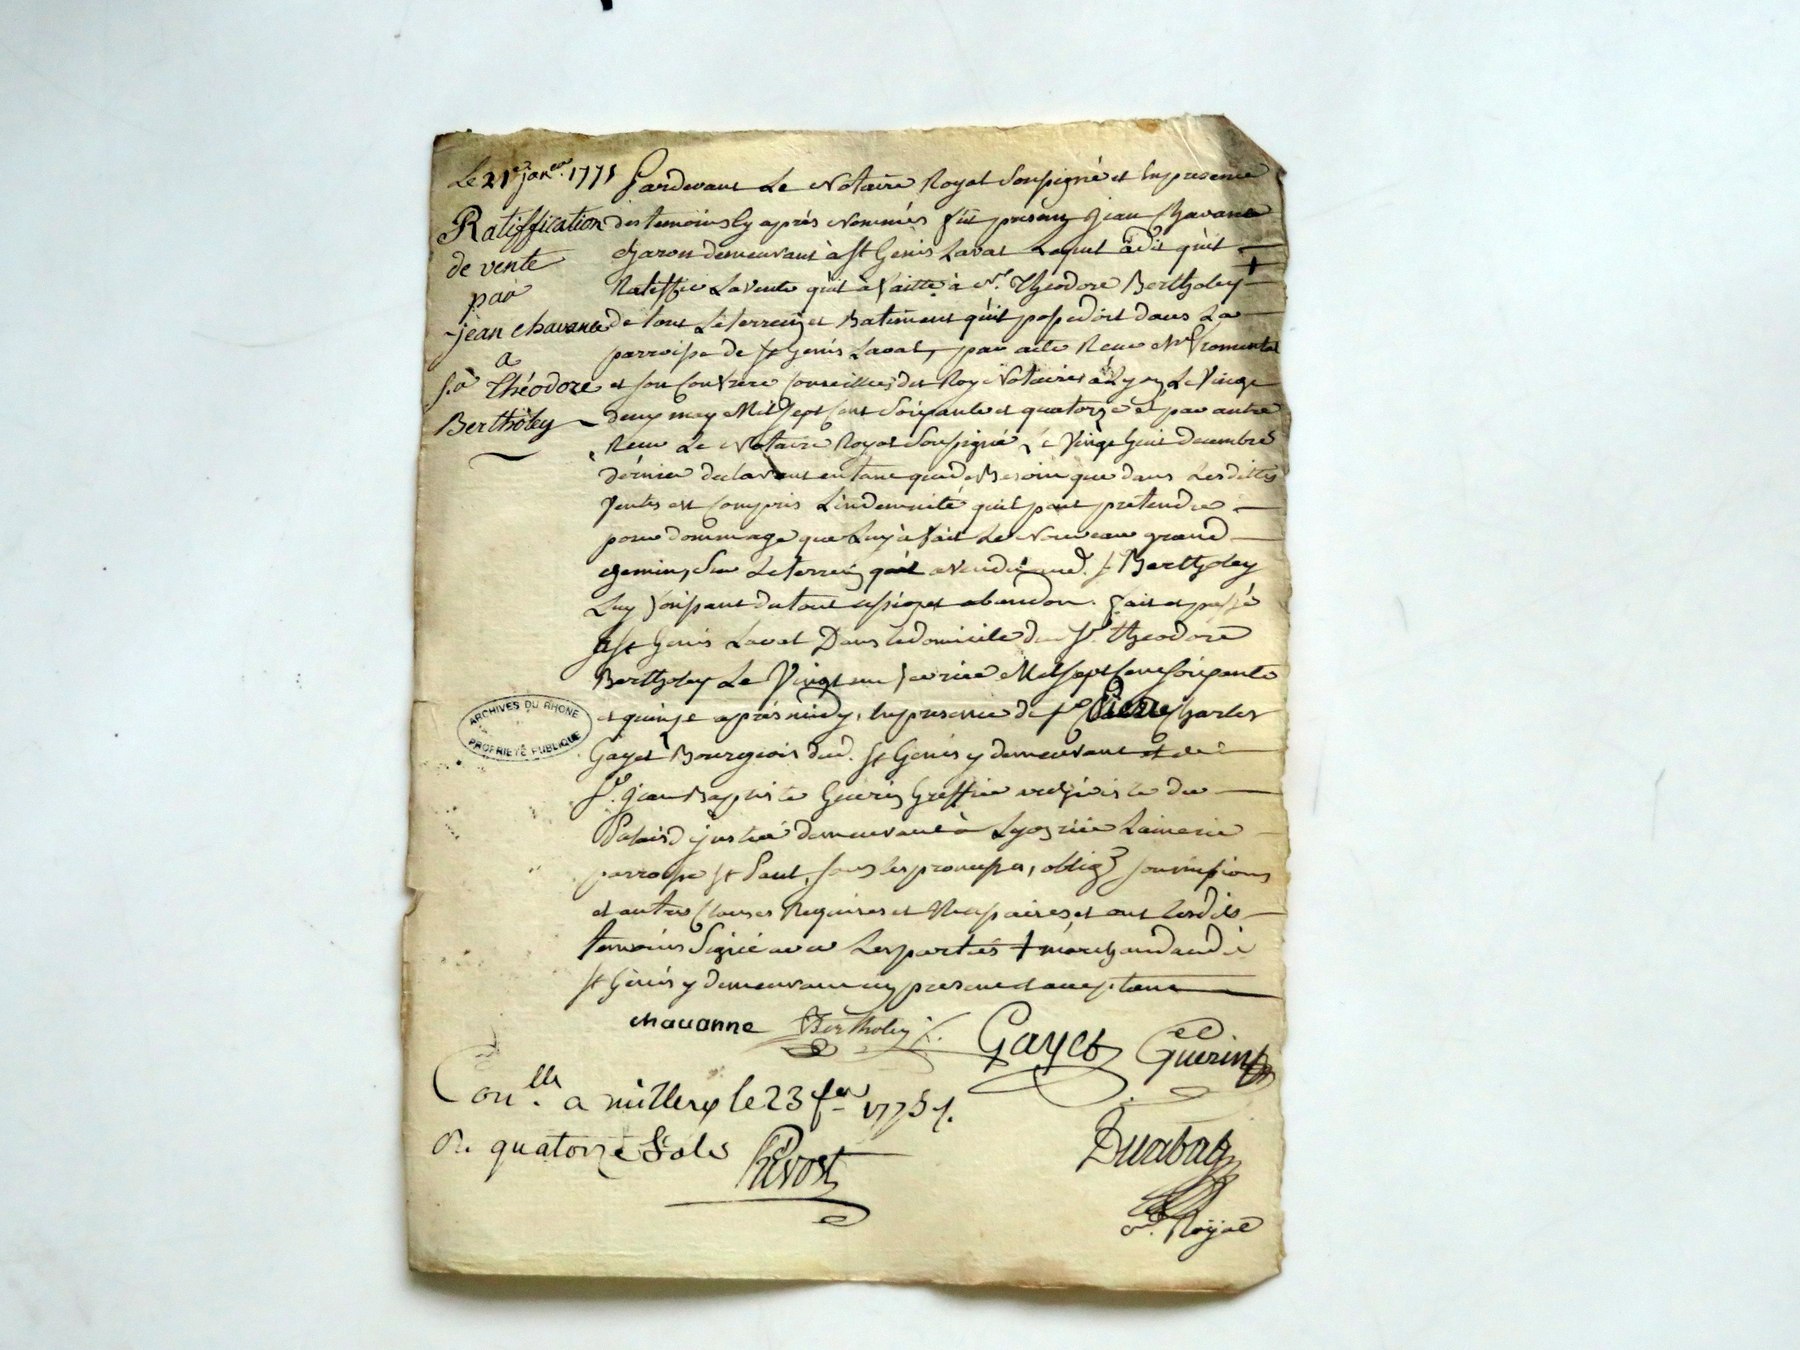 Le 21e janer. 1775
Ratiffication
de vente
par
jean chavanne
a
Sr Théodore
Bertholey
Pardevant Le Notaire Royal Soussigné et En presence
des temoins Cy aprés Nommés fut présent Jean Chavanne
charon demeurant à St Genis Laval Lequel à dit qu'il
Ratiffie La vente qu'il à faitte à Sr. Théodore Bertholey +
de tout Le terrein et Batiment qu'il possedoit dans La
parroisse de St Genis Laval, par acte Recu Me Fromental
et son Confrere Conseillers du Roy Notaires à Lyon Le Vingt
deux may Mil Sept Cent Soixante et quatorze et par autre
Recu Le Notaire Royal Soussigné Le Vingt huit decembre
dérnier declarant en tant que de Besoin que dans Lesdittes
Ventes est Compris L'indemnité qu'il peut pretendre
pour dommage que Luy à fait Le Nouveau grand
chemin, Sur Le terrein qu'il a Vendu aud. Sr Bertholey
Luy faisant du tout cession et abandon. fait et passé
à St Genis Laval Dans le domicile du Sr. Théodore
Bertholey Le Vingt un fevrier Mil sept Cent soixante
et quinze aprés midy, En presence de Sr Pierre Charles
Gayet Bourgeois dud. St Genis y demeurant et de
Sr. Jean Baptiste Guerin Greffier du
Palais demeurant à Lyon rüe Lainerie
parroisse St Paul, sous les promesses, oblig. soumissions
et autres Clauses Requises et Necessaires et ont Lesdits
temoins Signé avec Les parties + marchand aud.
St Genis y demeurant present et acceptant
chavanne Bertholey Gayet Guerin
Conlle. a millery le 23 fer 1775
R. quatorze Sols
Prévost
Duabad
Nre. Royal
ARCHIVES DU RHONE
PROPRIÉTÉ PUBLIQUE